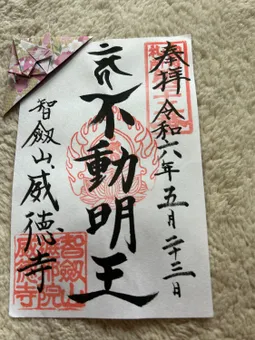 奉拝
令和六年五月二十三日
不動明王
智劔山、威徳寺
智劔山
威徳寺